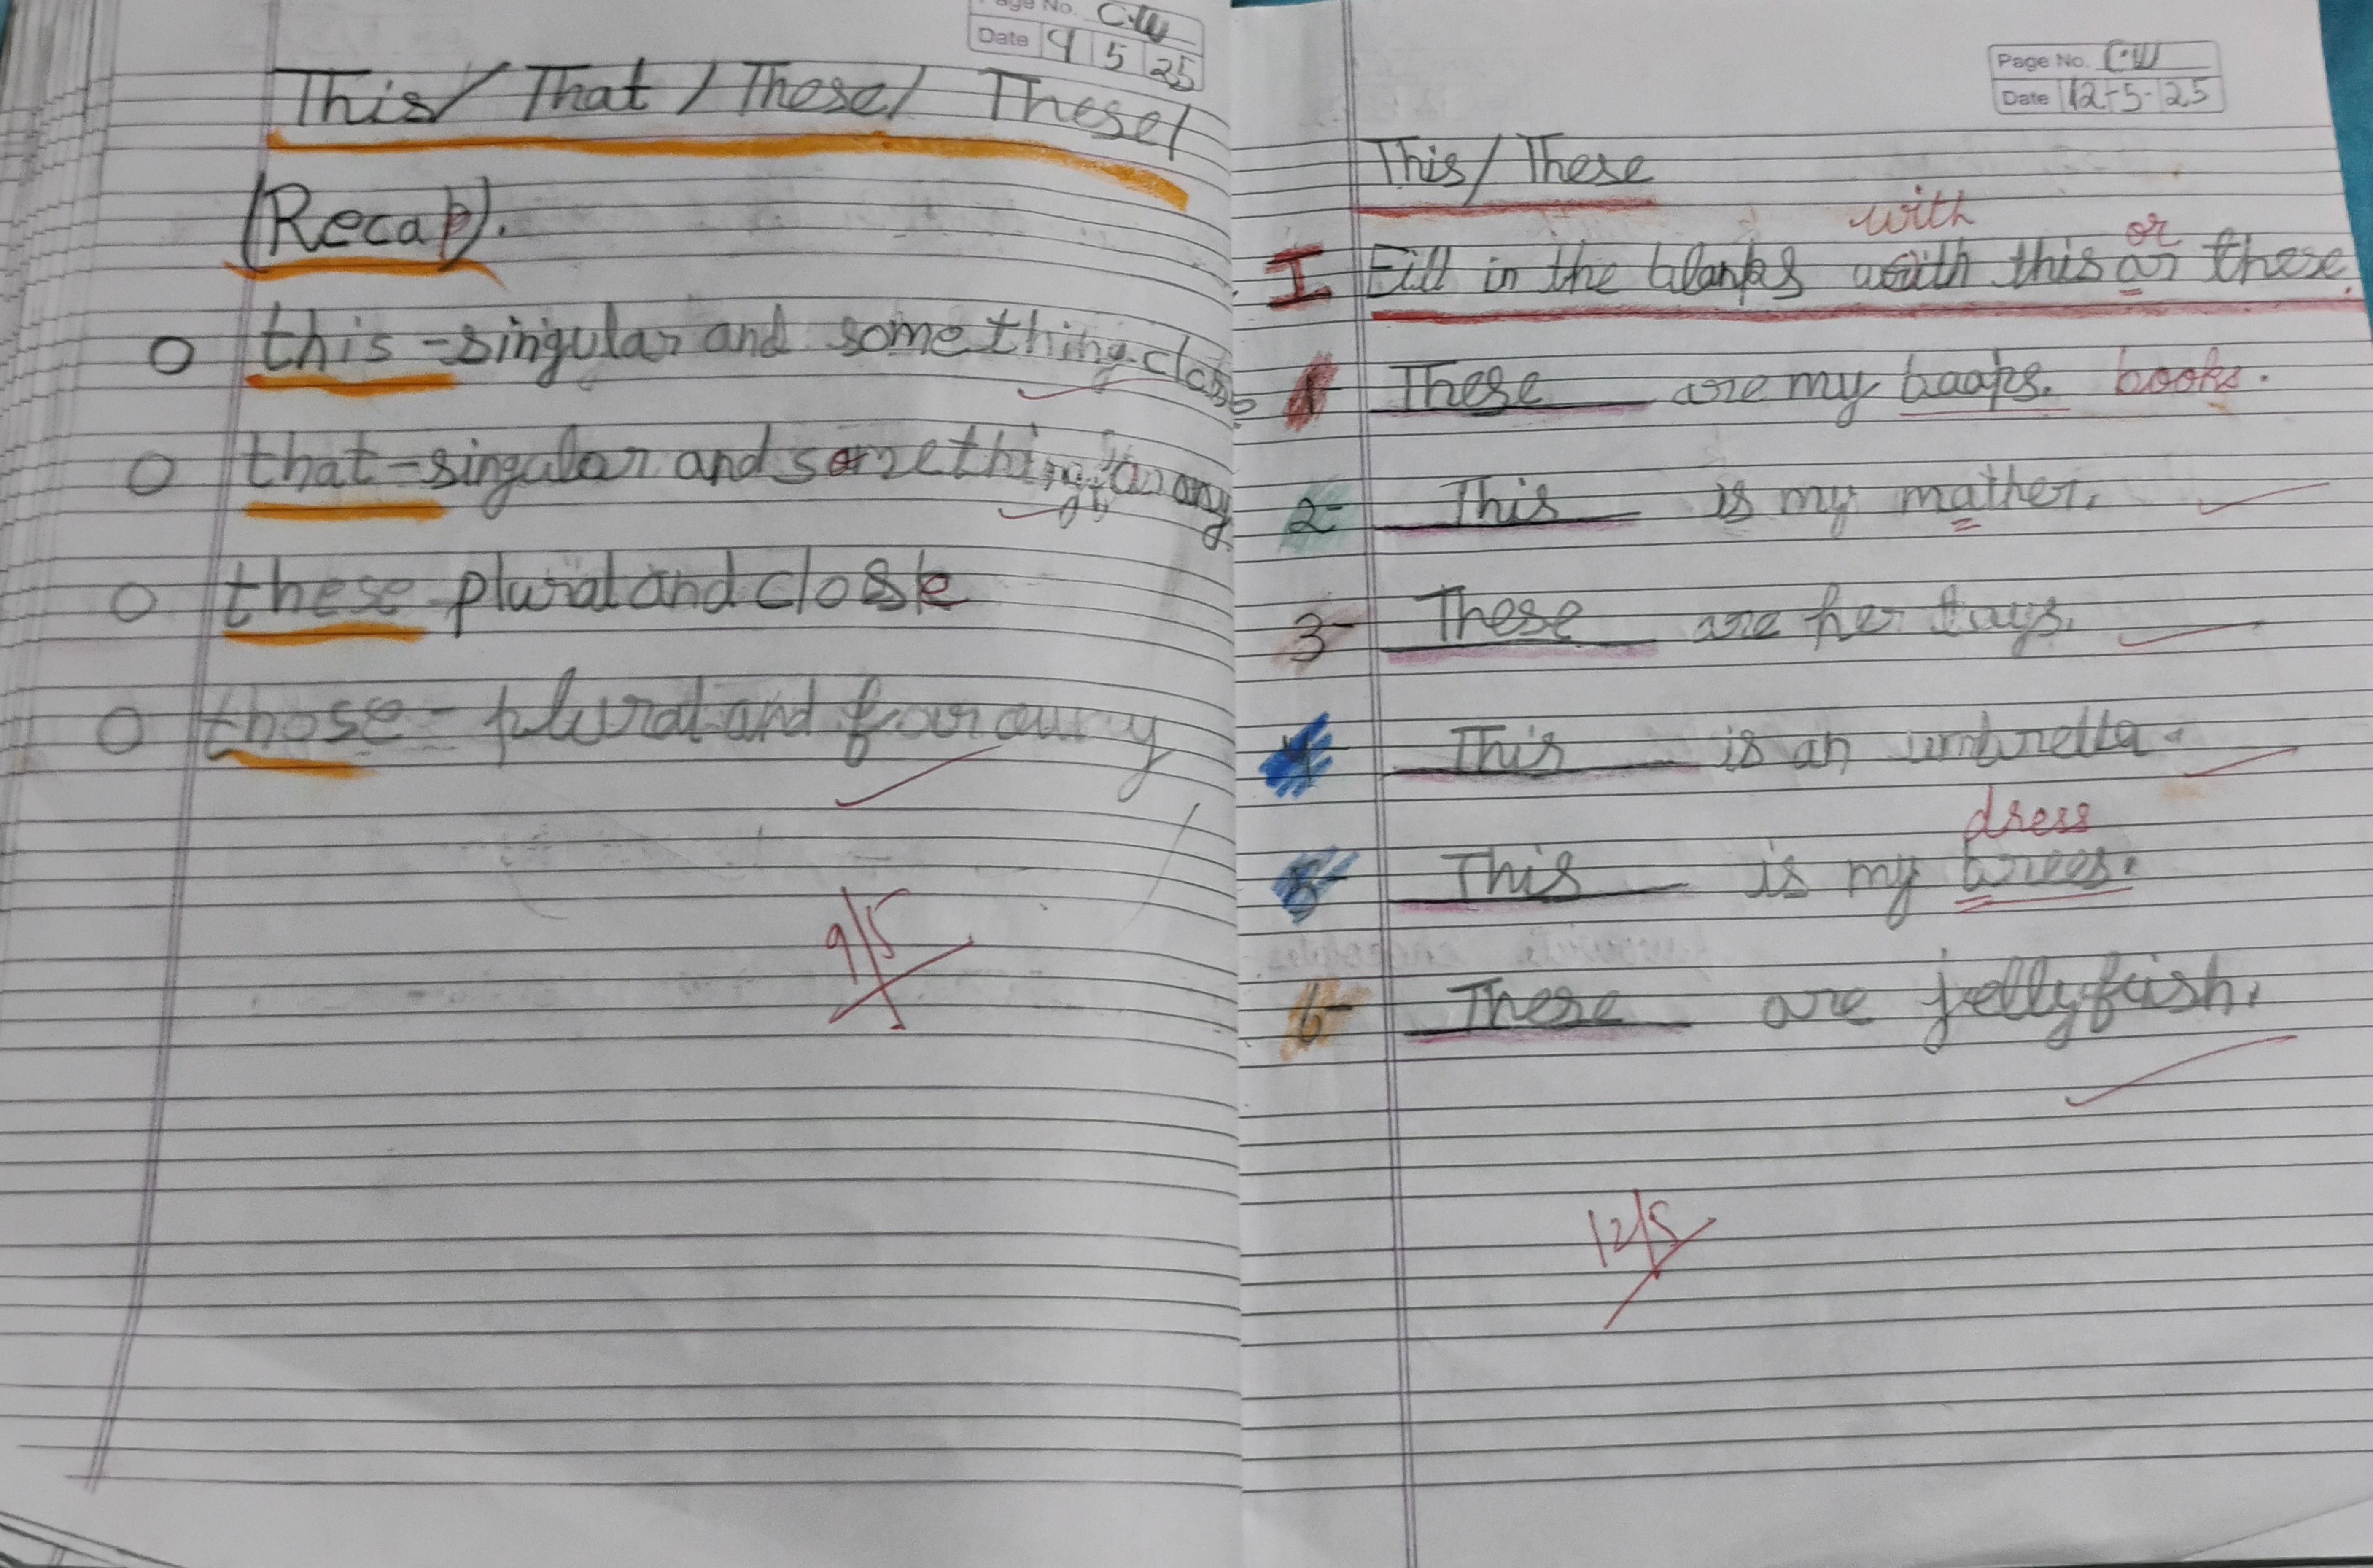 Page No. C.W
Date 9 5 25
This/ That / These/ These/
(Recap).
this - singular and something close
that - singular and something far away
these plural and close
those - plural and far away
9/5
Page No. C.W
Date 12-5-25
This/These
with or
I Fill in the blanks with this or these.
1 These are my baaks. books.
2- This is my mather.
3- These are her tays.
4- This is an umbrella.
dress
5- This is my
6- These are jellyfish.
12/5